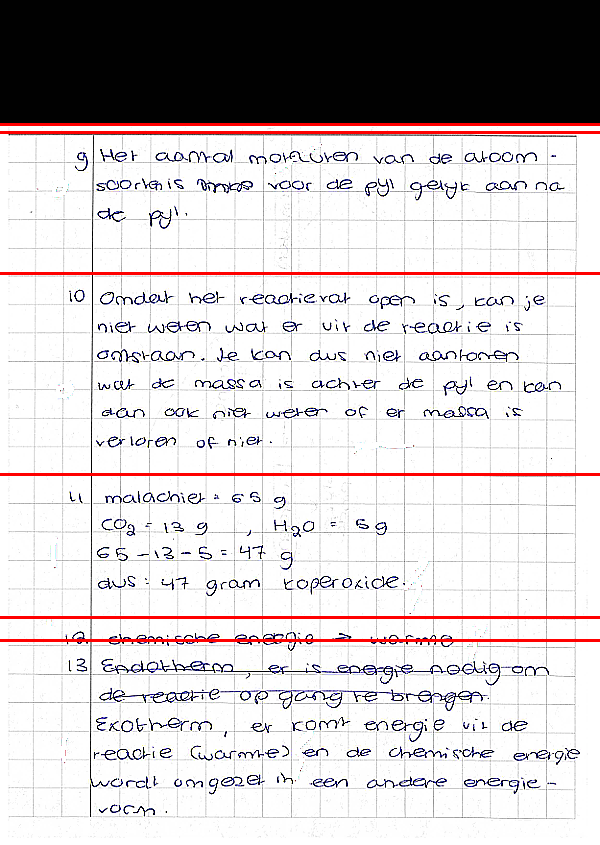 9 Het aantal moleculen van de atoom-
soorten is voor de pijl gelijk aan na
de pijl.
10 Omdat het reactievat open is, kan je
niet weten wat er uit de reactie is
ontstaan. Je kan dus niet aantonen
wat de massa is achter de pijl en kan
dan ook niet weten of er massa is
verloren of niet.
11 malachiet = 65 g
CO2 = 13 g , H2O = 5g
65-13-5 = 47 g
dus: 47 gram koperoxide.
12 chemische energie → warmte
13 Endotherm, er is energie nodig om
de reactie op gang te brengen.
Exotherm, er komt energie uit de
reactie (warmte) en de chemische energie
wordt omgezet in een andere energie-
vorm.